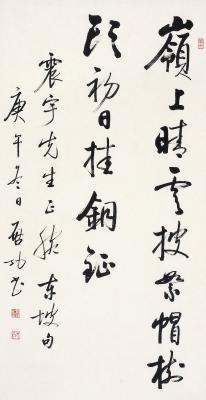 嶺上晴雲披絮帽樹
頭初日挂銅鉦
震宇先生正腕 東坡句
庚午冬日 啓功書